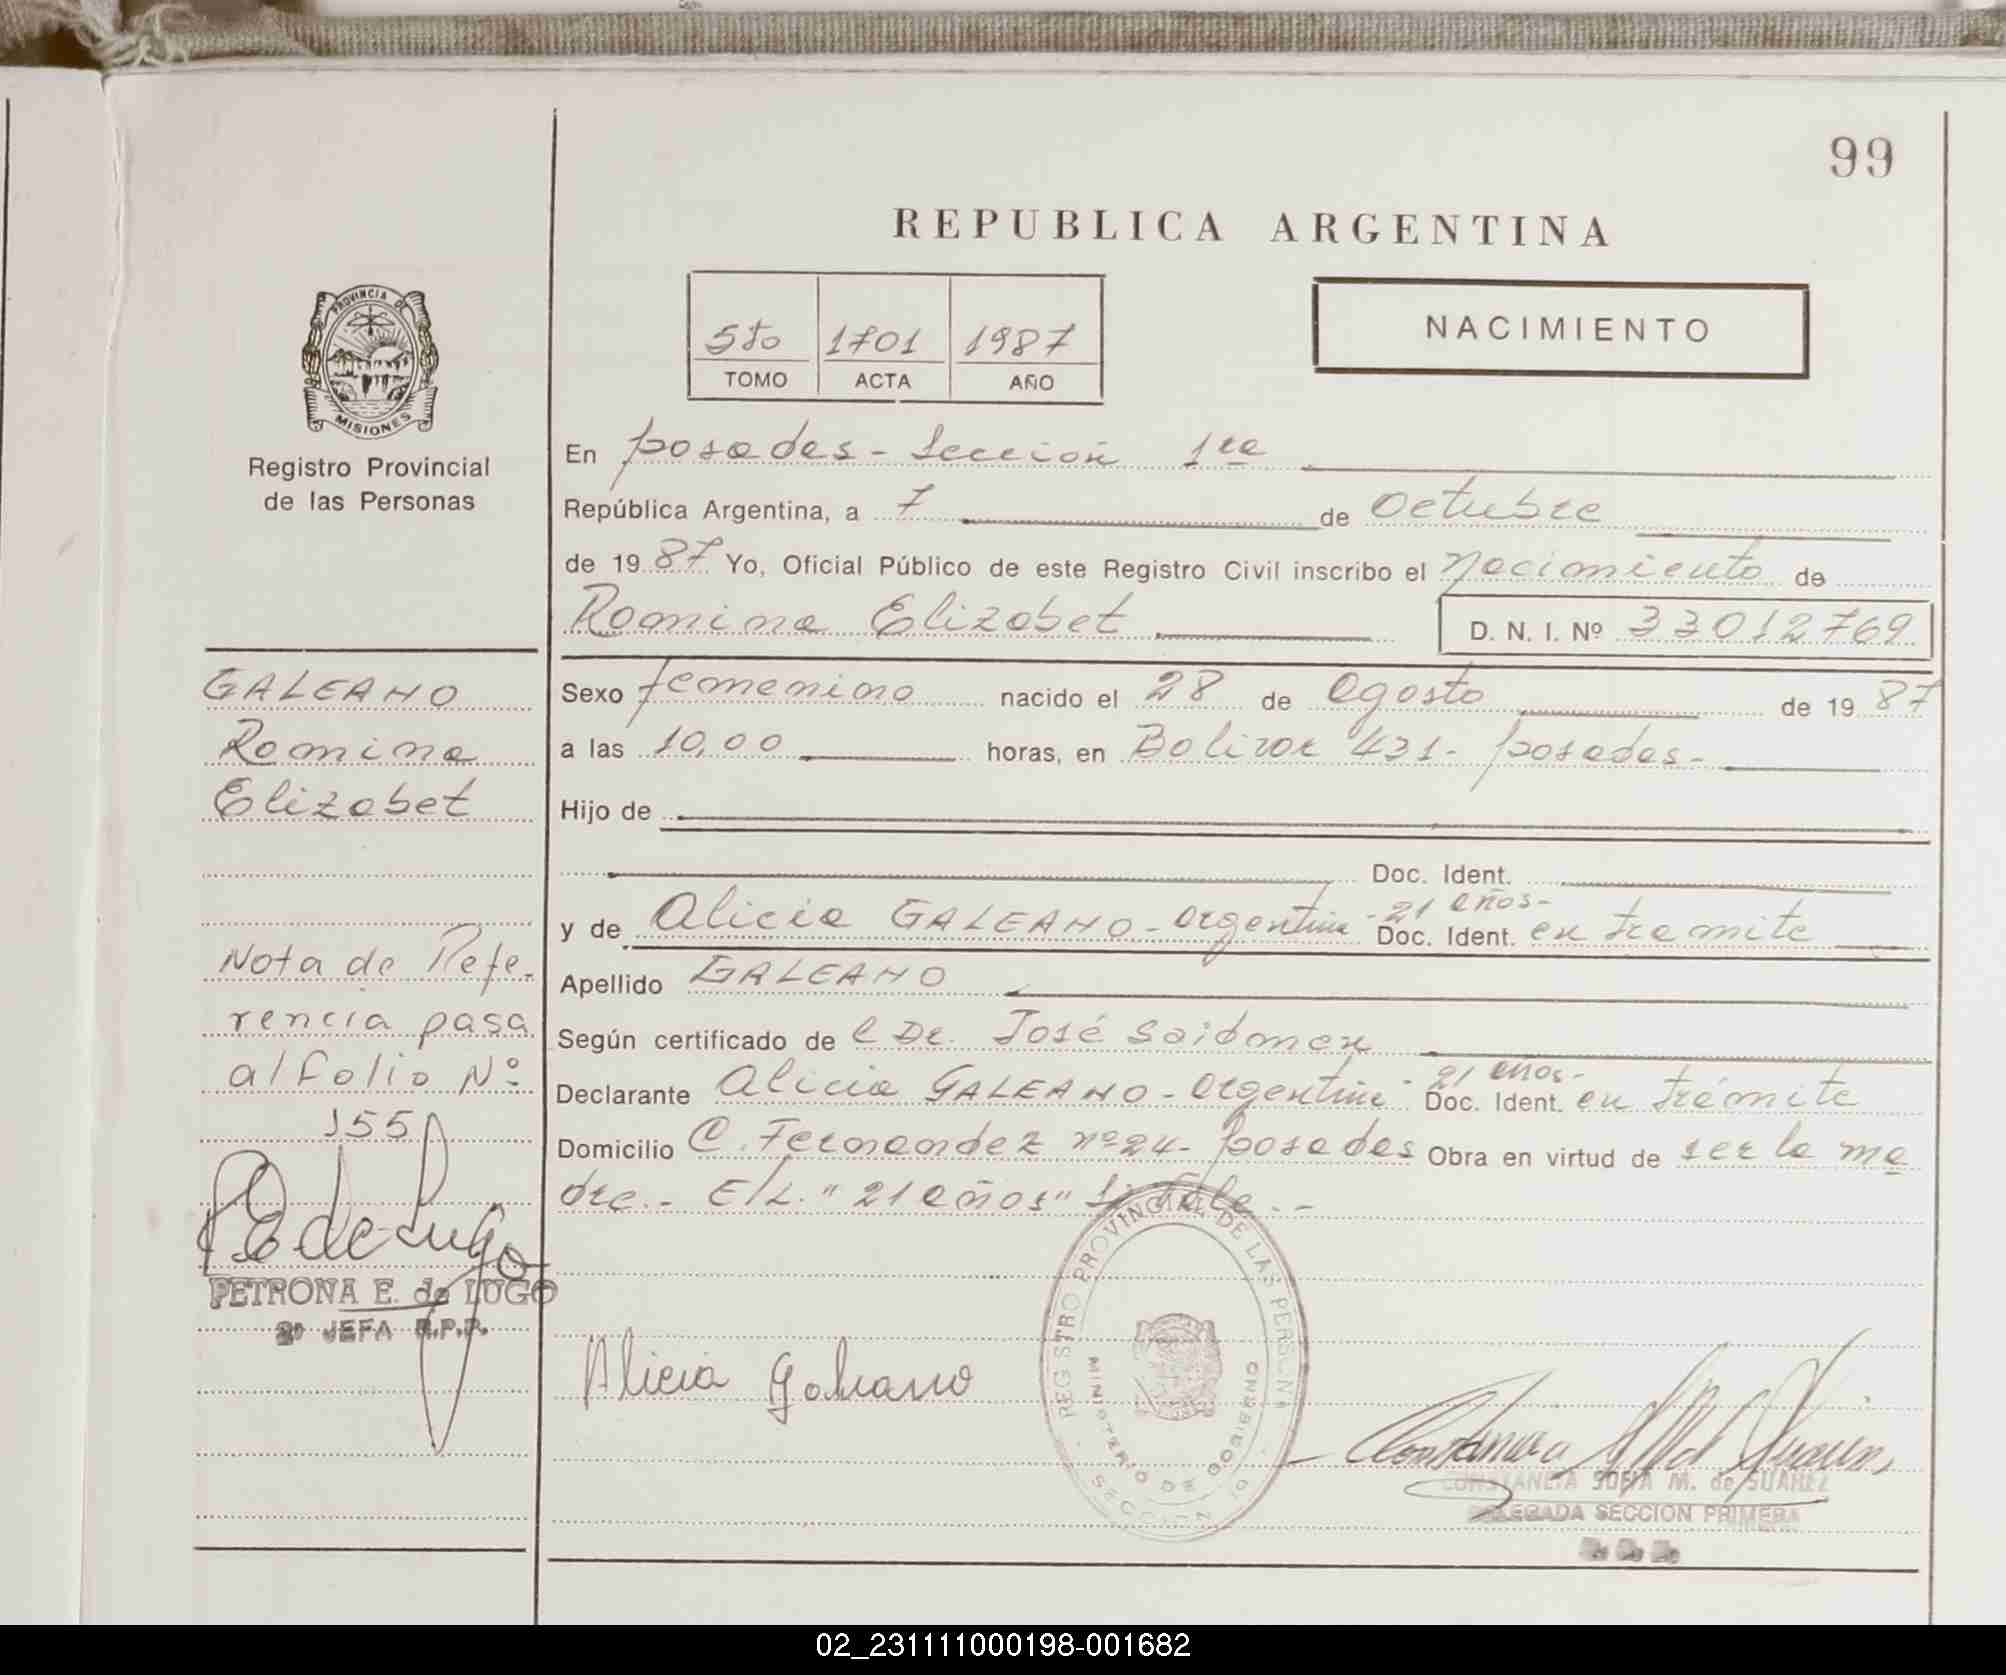 99
REPUBLICA ARGENTINA
5to 1701 1987
TOMO ACTA AÑO
NACIMIENTO
PROVINCIA DE MISIONES
Registro Provincial
de las Personas
En Posadas - Sección 1ra
República Argentina, a 7 de Octubre
de 1987 Yo, Oficial Público de este Registro Civil inscribo el Nacimiento de
Romina Elizabet D. N. I. Nº 33012769
Sexo femenino nacido el 28 de Agosto de 1987
a las 10,00 horas, en Bolivar 431 - Posadas -
Hijo de
Doc. Ident.
y de Alicia GALEANO - Argentina - 21 años - Doc. Ident. en tramite
Apellido GALEANO
Según certificado de l Dr. José
Declarante Alicia GALEANO - Argentina - 21 años - Doc. Ident. en trámite
Domicilio C. Fernandez nº 24 - Posadas Obra en virtud de ser la ma
dre. - E/L. "21 años" Si Vale. -
GALEANO
Romina
Elizabet
Nota de Refe-
rencia pasa
al folio Nº
155
P E de Lugo
PETRONA E. de LUGO
2º JEFA R.P.P.
Alicia Galeano
REGISTRO PROVINCIAL DE LAS PERSONAS
MINISTERIO DE GOBIERNO
SECCION 1ª
CONSTANCIA SOFIA M. de SUAREZ
DELEGADA SECCION PRIMERA
02_231111000198-001682